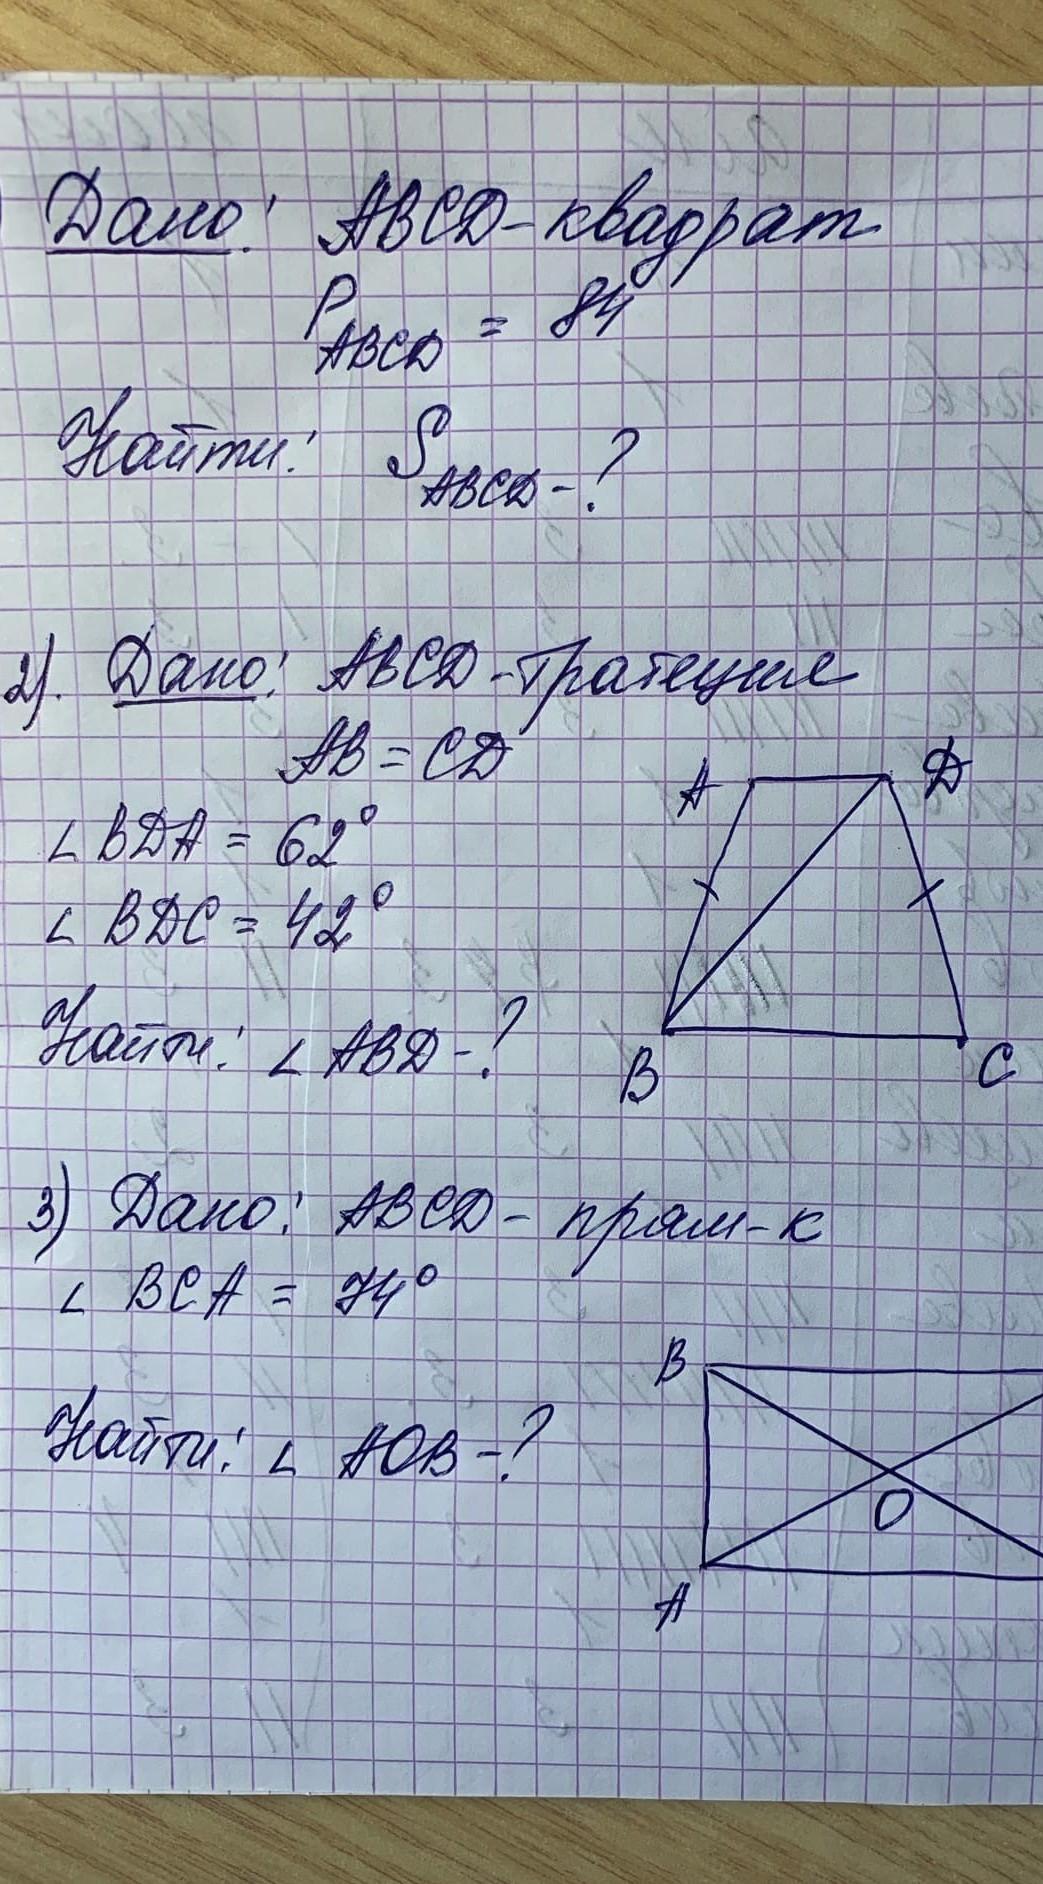 Дано: ABCD-квадрат
P ABCD = 84
Найти: S ABCD-?
2). Дано: ABCD-трапеция
AB = CD
∠ BDA = 62°
∠ BDC = 42°
A D
Найти: ∠ ABD-?
B C
3) Дано: ABCD- прям-к
∠ BCA = 74°
B
Найти: ∠ AOB-?
O
A